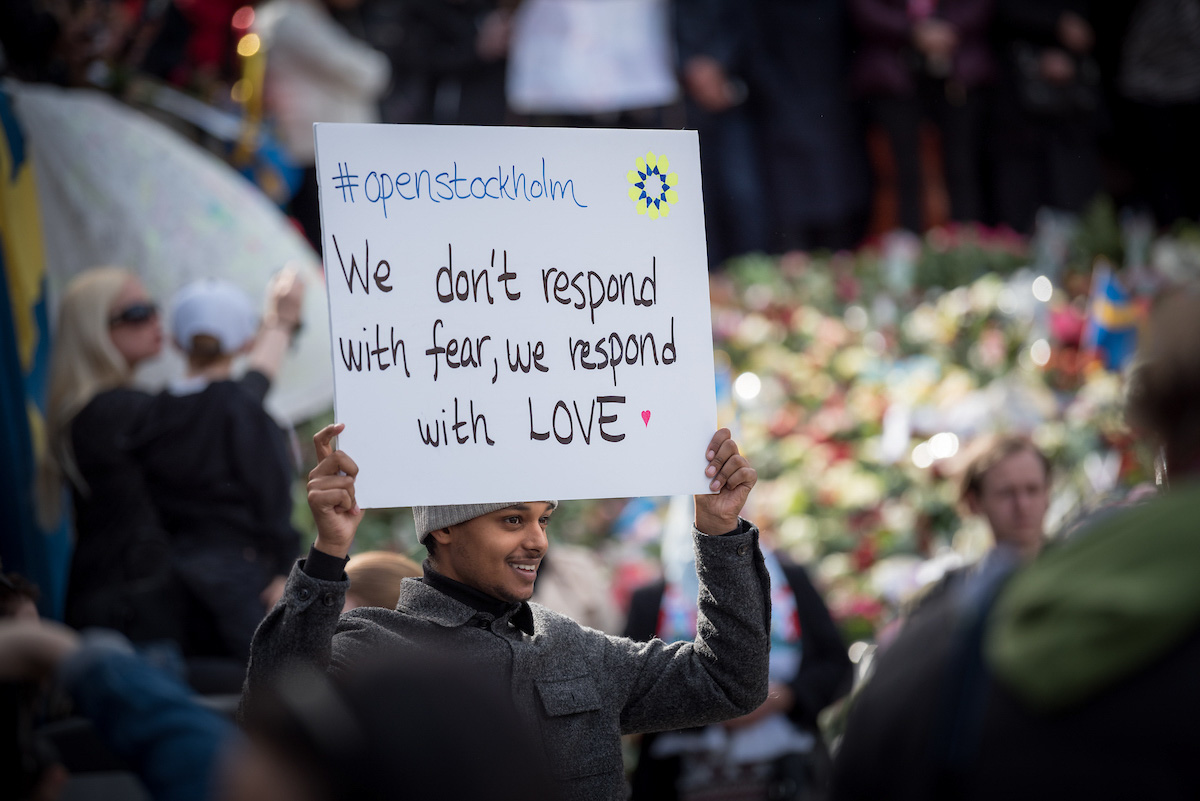 #openstockholm
We don't respond
with fear, we respond
with LOVE